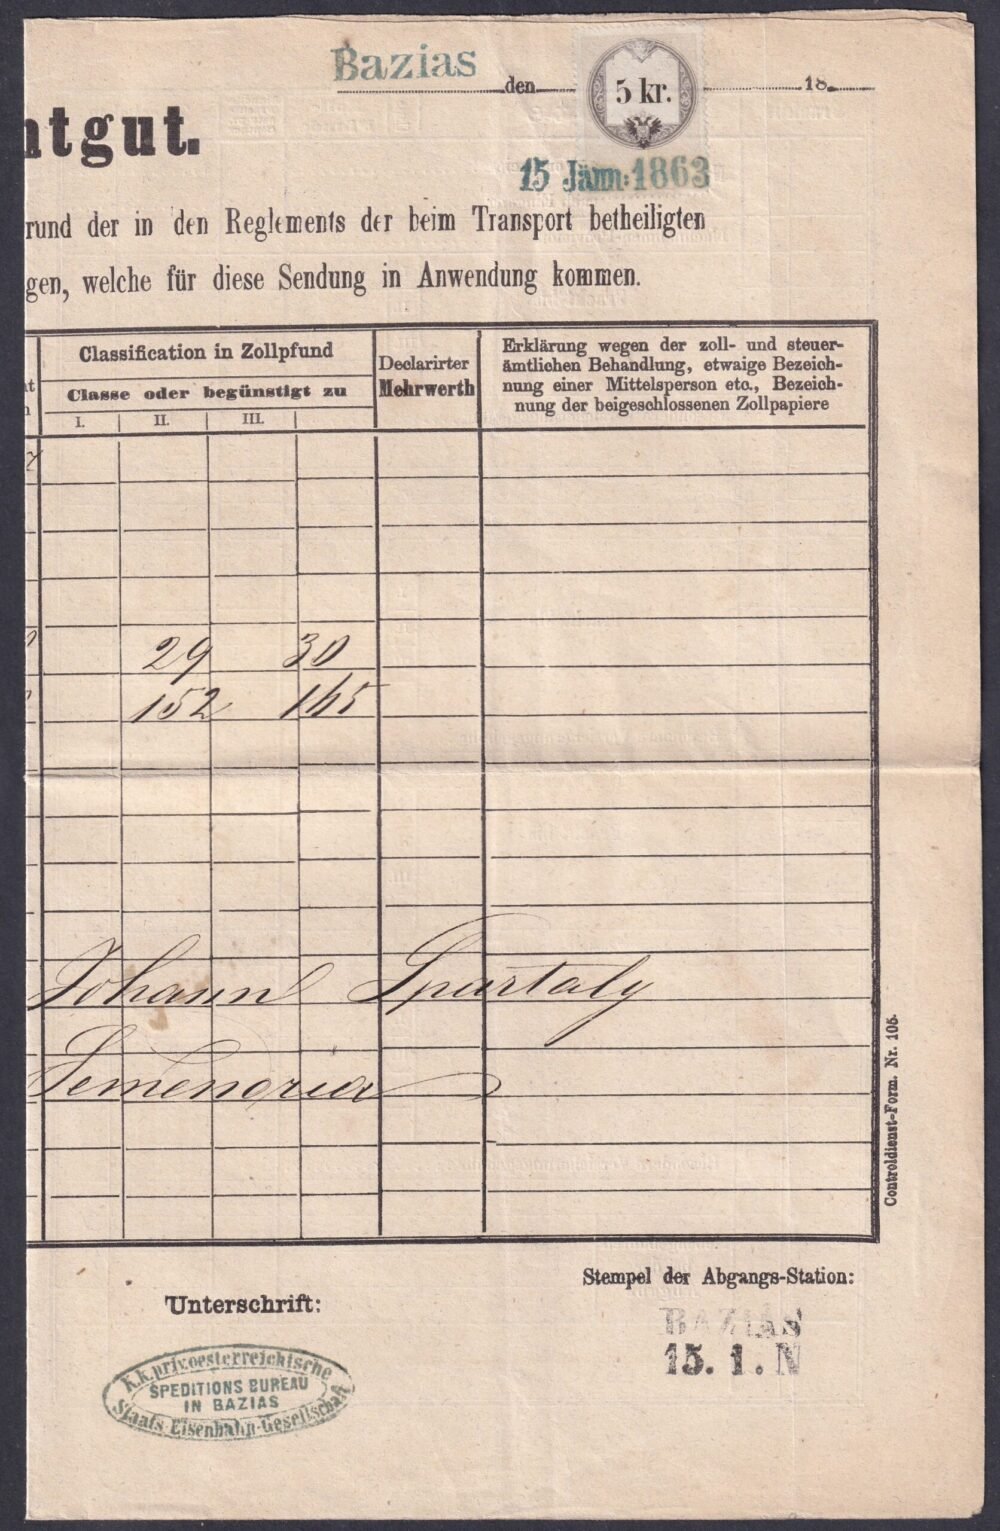 Bazias den 5 kr. 18
ntgut.
15 Jänn: 1863
rund der in den Reglements der beim Transport betheiligten
gen, welche für diese Sendung in Anwendung kommen.
Classification in Zollpfund
Classe oder begünstigt zu
I. II. III.
Declarirter
Mehrwerth
Erklärung wegen der zoll- und steuer-
ämtlichen Behandlung, etwaige Bezeich-
nung einer Mittelsperson etc., Bezeich-
nung der beigeschlossenen Zollpapiere
29 30
152 165
Johann Spartaly
Semendria
Controldienst-Form. Nr. 105.
Stempel der Abgangs-Station:
BAZIAS
15. 1. N
Unterschrift:
K.k. priv. oesterreichische
SPEDITIONS BUREAU
IN BAZIAS
Staats-Eisenbahn-Gesellschaft